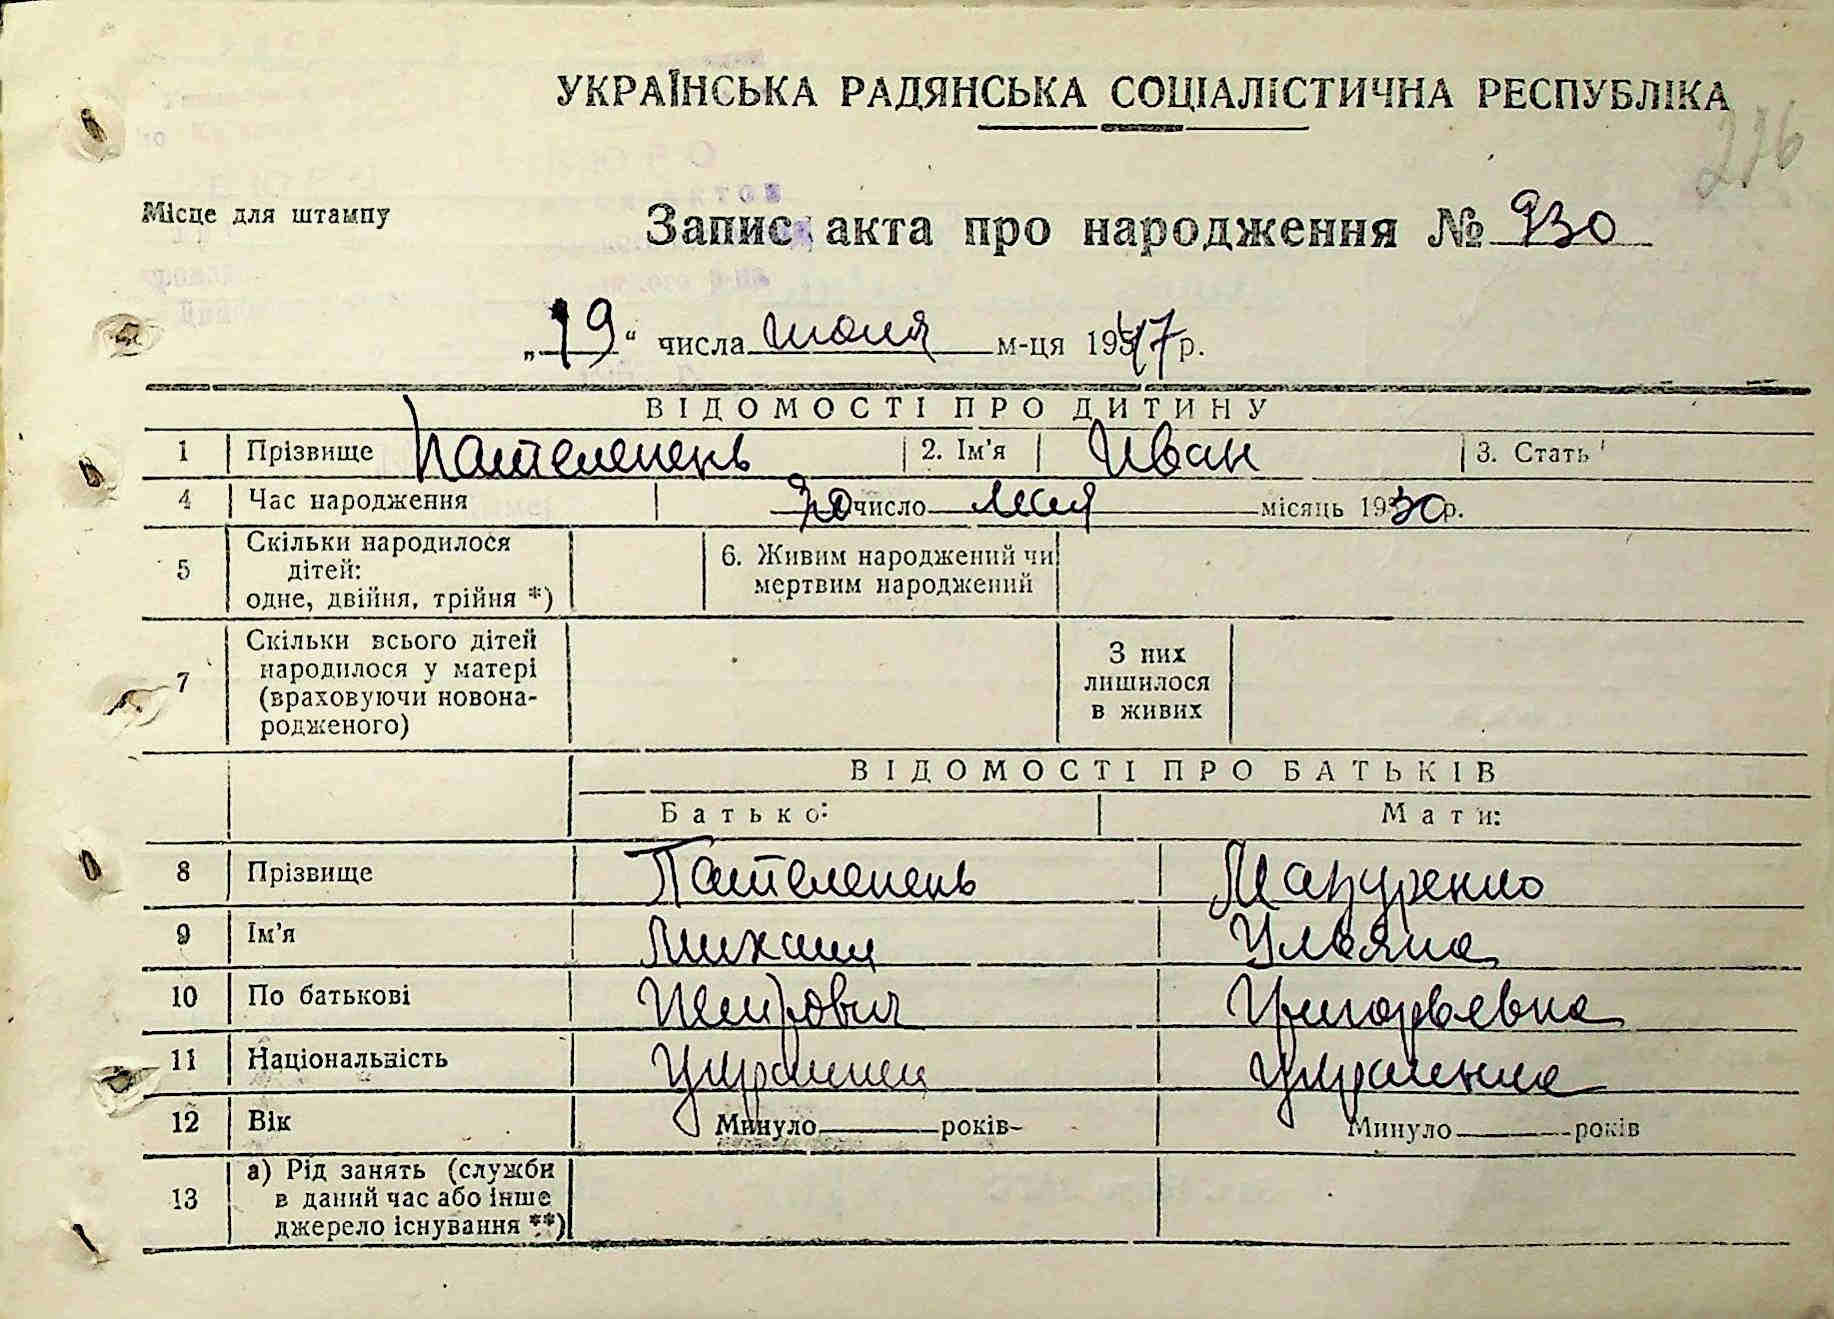 УКРАЇНСЬКА РАДЯНСЬКА СОЦІАЛІСТИЧНА РЕСПУБЛІКА
226
Місце для штампу
Запис акта про народження № 930
„19“ числа июля м-ця 1947 р.
ВІДОМОСТІ ПРО ДИТИНУ
1 Прізвище Пателепень 2. Ім'я Иван 3. Стать
4 Час народження 30 число мая місяць 1930 р.
5 Скільки народилося дітей: одне, двійня, трійня *) 6. Живим народжений чи мертвим народжений
7 Скільки всього дітей народилося у матері (враховуючи новонародженого) З них лишилося в живих
ВІДОМОСТІ ПРО БАТЬКІВ
Батько: Мати:
8 Прізвище Пателепень Мазуренко
9 Ім'я Михаил Ульяна
10 По батькові Петрович Григорьевна
11 Національність Украинец Украинка
12 Вік Минуло років Минуло років
13 а) Рід занять (служби в даний час або інше джерело існування **)